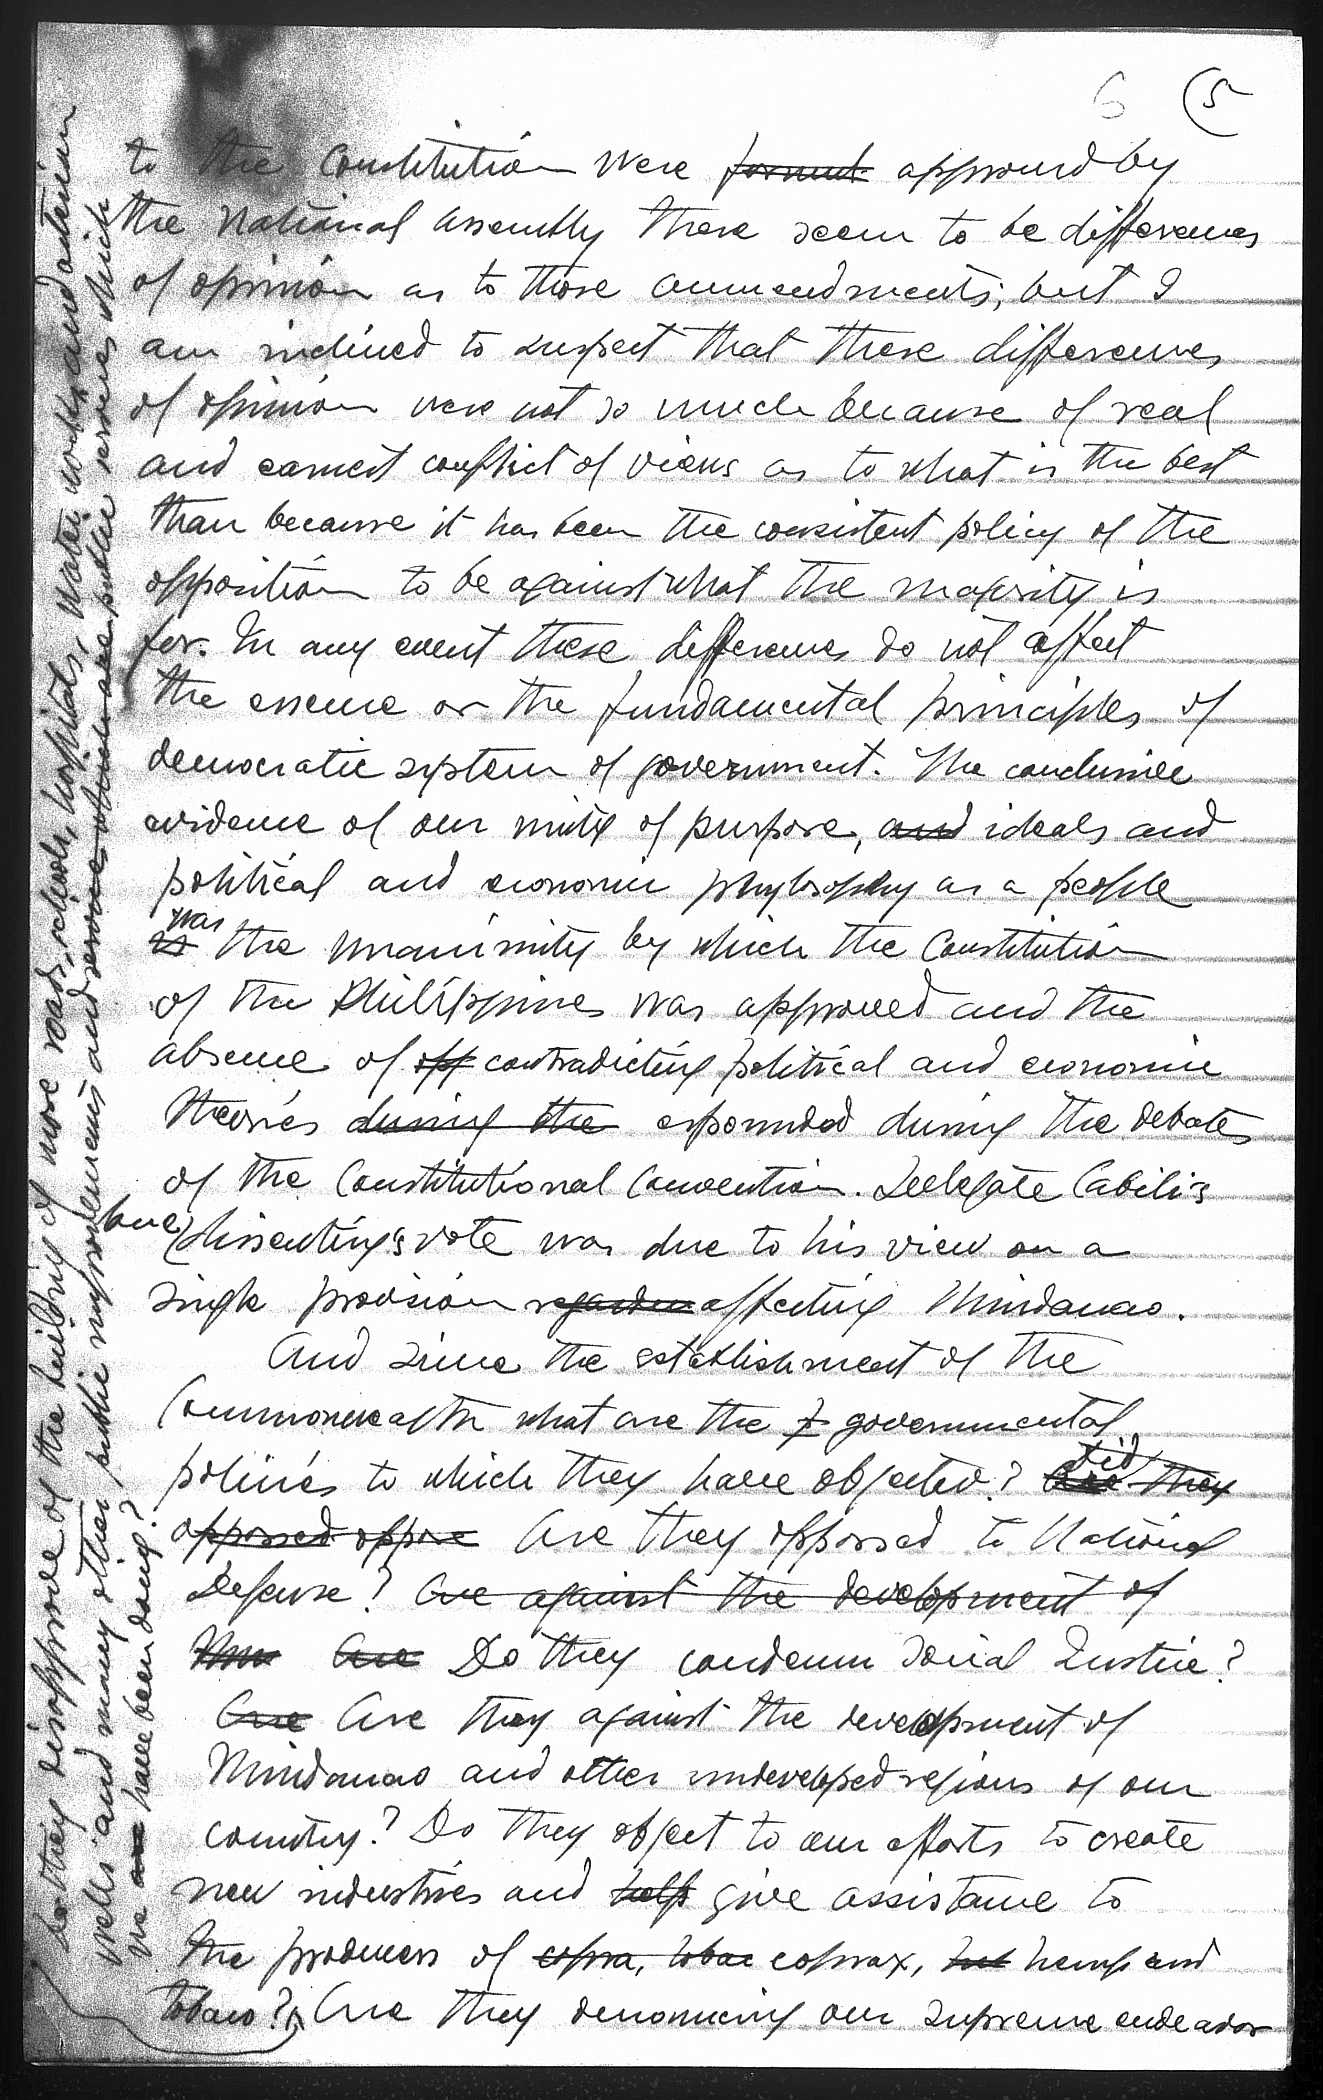 6 (5
to the Constitution were formul approved by
the National Assembly there seem to be differences
of opinion as to those ammendments; but I
am inclined to suspect that these differences
of opinion were not so much because of real
and earnest conflict of views as to what is the best
than because it has been the consistent policy of the
opposition to be against what the majority is
for. In any event these differences do not affect
the essence or the fundamental principles of
democratic system of government. The conclusive
evidence of our unity of purpose, and ideals and
political and economic phylosophy as a people
is was the unanimity by which the Constitution
of the Philippines was approved and the
absence of opp contradicting political and economic
theories during the expounded during the debates
of the Constitutional Convention. Delegate Cabili's
lone dissenting's vote was due to his view on a
single provision regarden affecting Mindanao.
And since the establishment of the
Commonwealth what are the governmental
policies to which they have objected? Are Did they
opposed oppose Are they opposed to National
Defense? Are against the development of
Min Are Do they condemn Social Justice?
Are Are they against the development of
Mindanao and other undeveloped regions of our
country? Do they object to our efforts to create
new industries and help give assistance to
the producers of copra, tobac coprax, hemp and
tobaco? Are they denouncing our supreme endeavor
Do they disapprove of the building of more roads, schools, hospitals, water works and artesian
wells and many other public improvements and services which are public services which
we are have been doing?